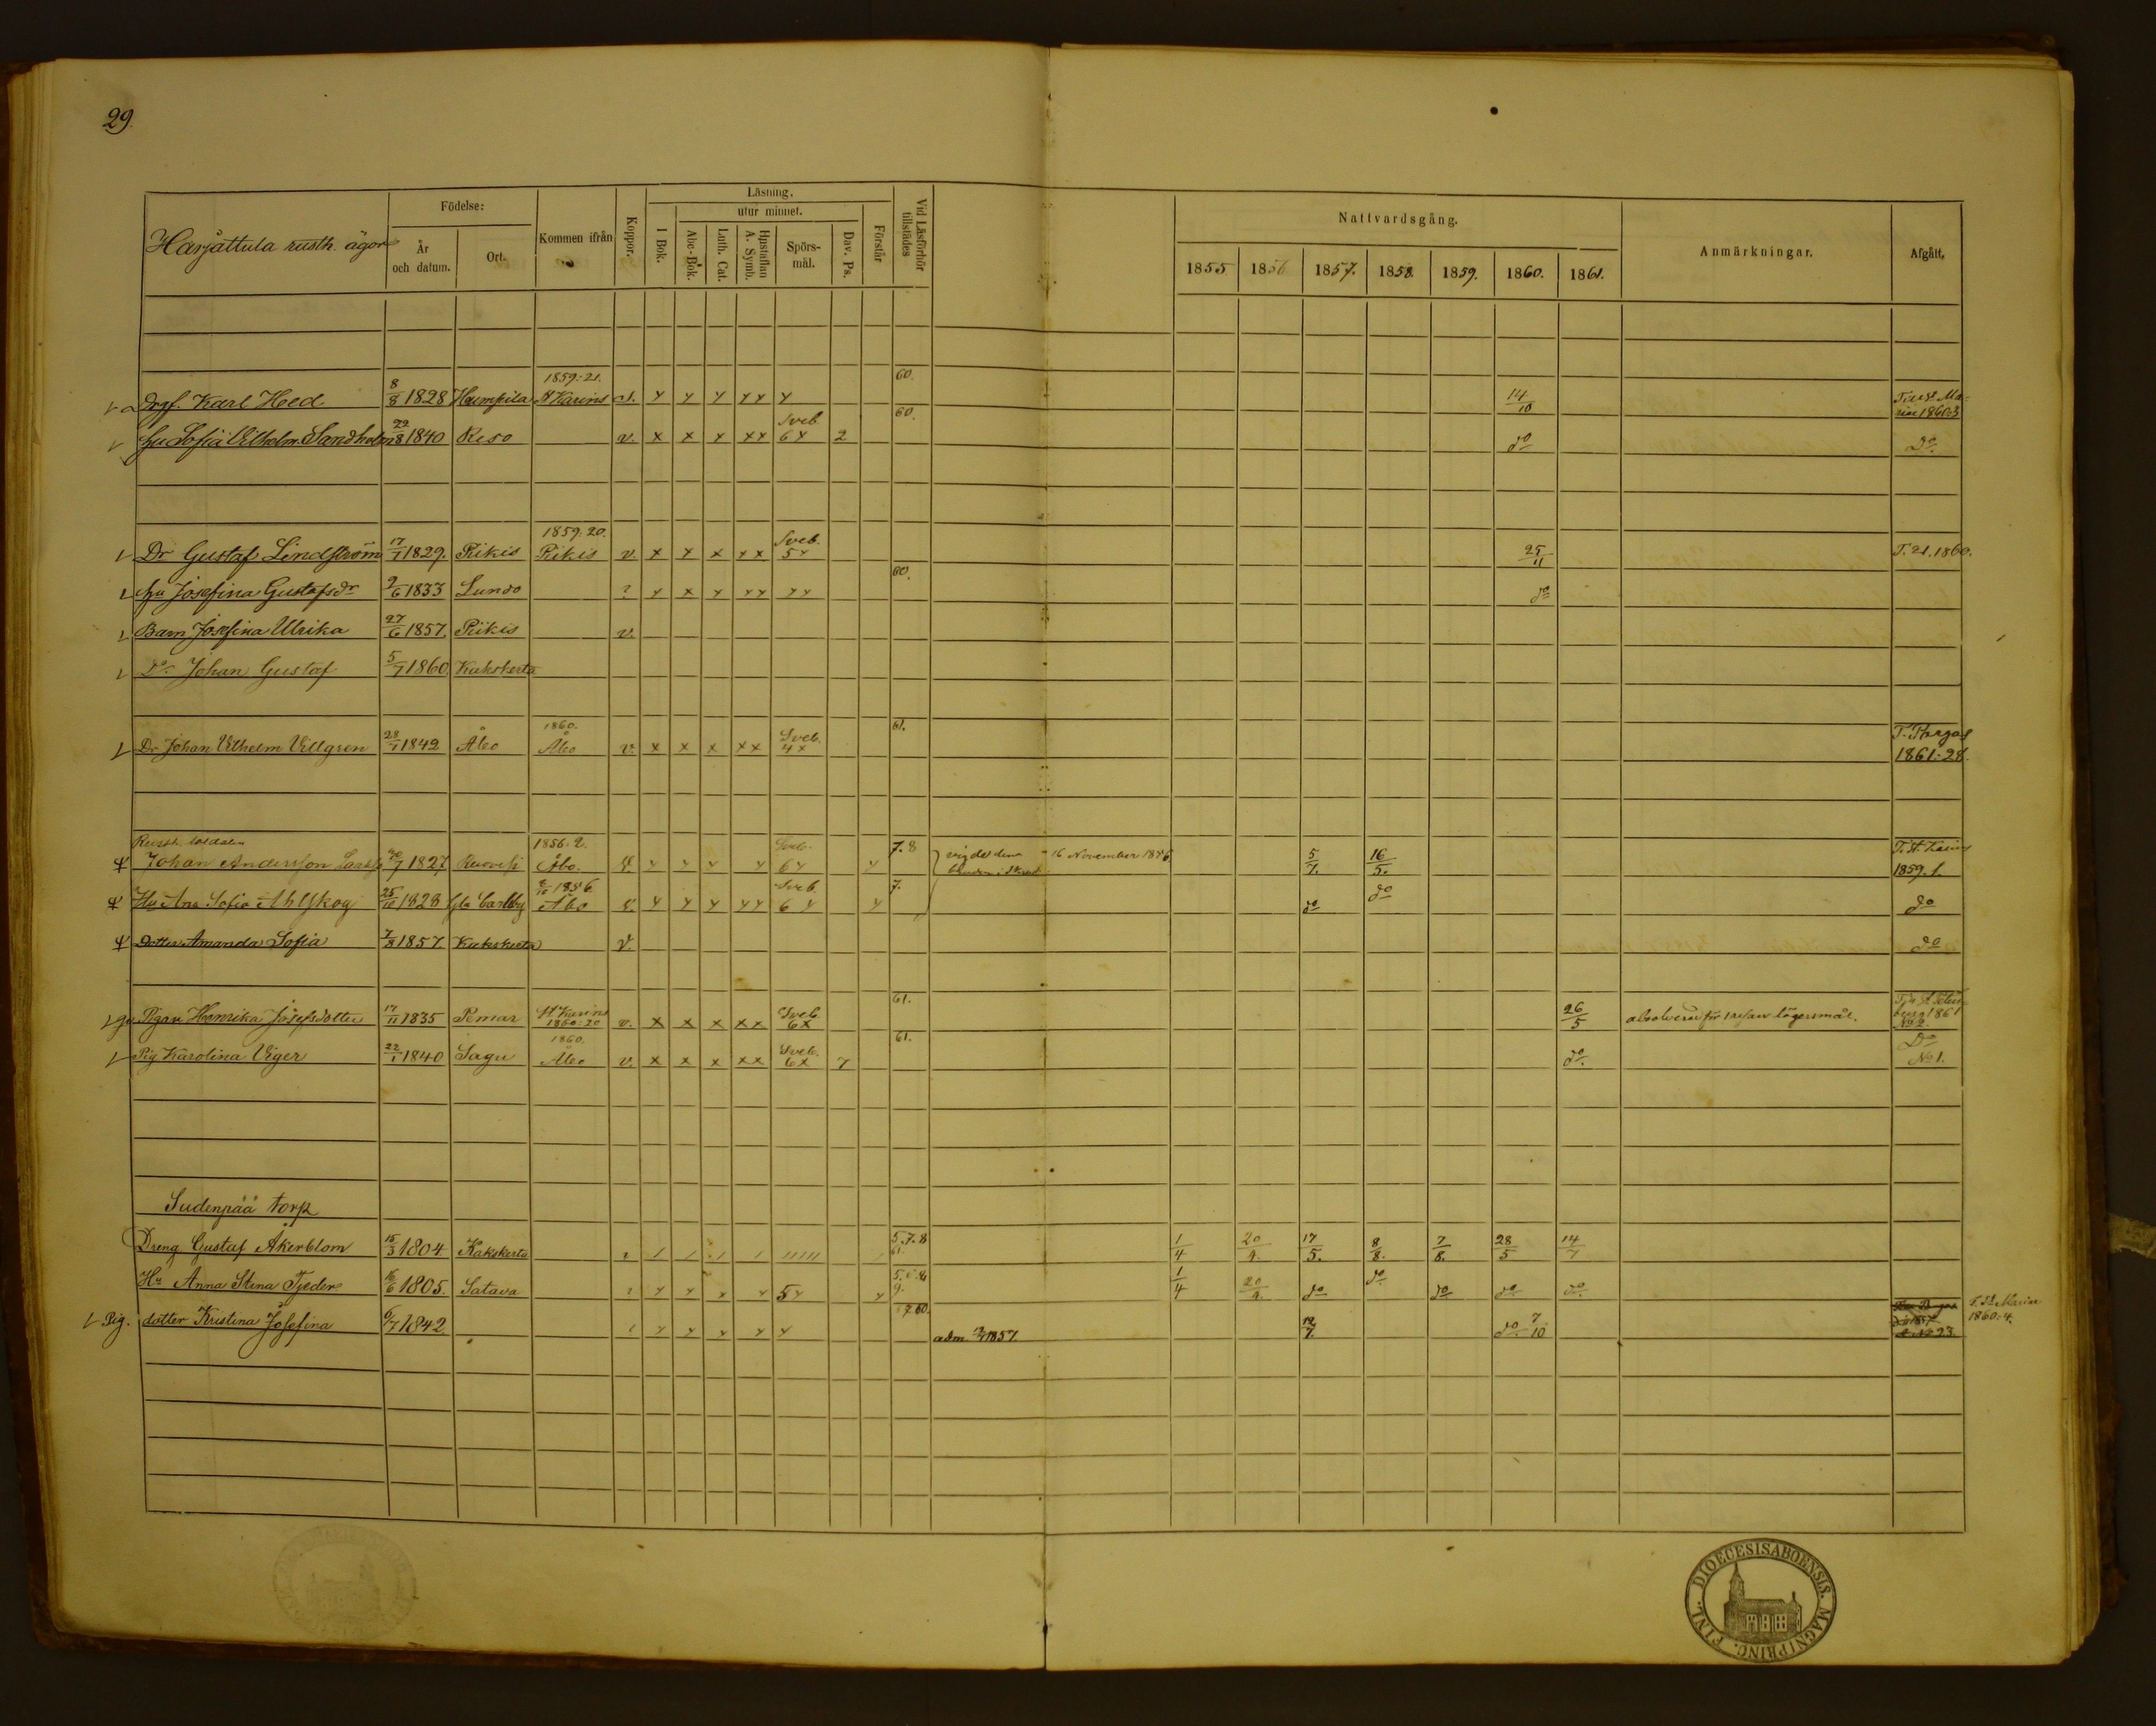 29.
Harjattula rusth. ägor
Födelse:
År och datum.
Ort.
Kommen ifrån
Koppor.
Läsning.
I Bok.
utur minnet.
Abc-Bok.
Luth. Cat.
Hustaflan A. Symb.
Spörs-mål.
Dav. Ps.
Förstår
Vid Läsförhör tillstädes
Nattvardsgång.
1855 1856 1857. 1858. 1859. 1860. 1861.
Anmärkningar.
Afgått.
1859:21. 60.
Karl Heed 8/8 1828 Humpila St Karins x x x xx x 14/10
1860:3
Sveb. 60.
hu Sofia Vilhelm. Sandholm 22/8 1840 Reso v. x x x xx 6x 2 do Do
1859:20. Sveb.
Dr Gustaf Lindström 17/7 1829. Piikis Piikis v. x x x xx 5x 25/11 T. 21. 1860.
60.
hu Josefina Gustafsdr 2/6 1833 Lundo ? x x x xx xx do
Barn Josefina Ulrika 27/6 1857. Piikis v.
Do Johan Gustaf 5/7 1860. Kakskerta
1860. Sveb. 61.
Dr Johan Vilhelm Villgren 28/1 1842 Åbo Åbo v. x x x xx 4x T. Pargas
1861:28.
Rusth. soldaten 1856.2. Sveb. 7.8
Johan Andersson 1827 Ruovesi Åbo. x x x x 6x x vigde den 16 November 1856 5/7. 16/5. T. St. Karins
1859. 1.
1856. Sveb. 7.
Hu Ana Sofia Ahlskog 25/10 1828 Gla Carleby Åbo x x x xx 6x x do do do
Dotter Amanda Sofia 7/8 1857. Kakskerta v. do
61.
Pigan Henrika Josefsdotter 17/11 1835 Pemar St Karins 1860:20 v. x x x xx Sveb. 6x 26/5 absolverad för 1 resan lägersmål.
1861 No 2.
1860. 61.
Pig Karolina Viger 22/1 1840 Sagu Åbo v. x x x xx Sveb. 6x 7 do. Do No 1.
Sudenpää torp
Dreng Gustaf Åkerblom 15/3 1804 Kakskerta 5.7.8 61. 1/4 20/4. 17/5. 8/8. 7/8. 28/5 14/7
Hu Anna Stina Tjeder 16/6 1805. Satava x x x x 5x x 1/4 20/4. do do do do do.
Pig. dotter Kristina Josefina 6/7 1842. x x x x x 7.60. adm 1857. 12/7. do 7/10
T. St Marie 1860:4.
FINL. DIOECESISABOENSIS. MAGNIPRINC.